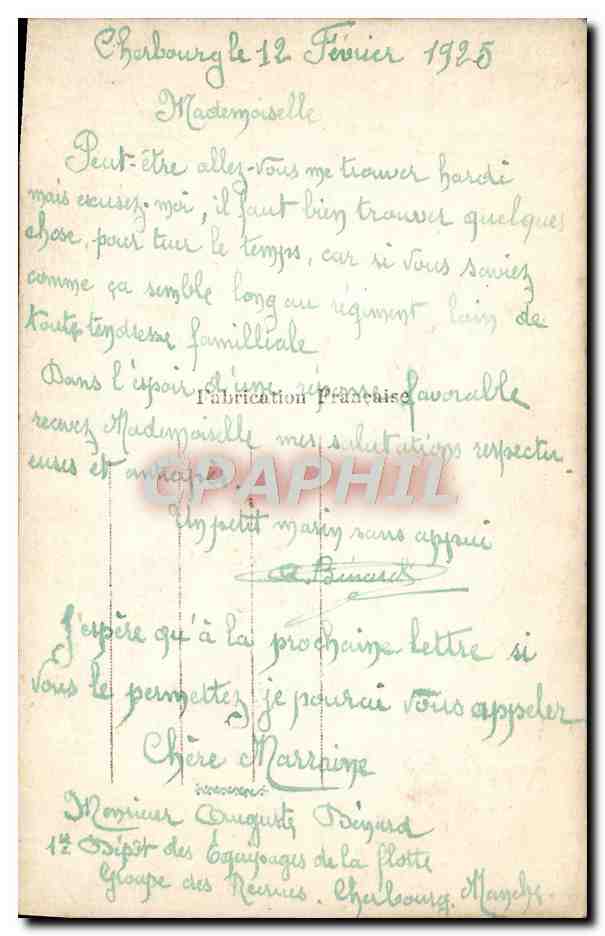 Cherbourg le 12 Février 1925
Mademoiselle
Peut-être allez-vous me trouver hardi
mais excusez-moi, il faut bien trouver quelques
chose, pour tuer le temps, car si vous saviez
comme ça semble long au régiment, loin de
toute tendresse familliale
Dans l'espoir d'une réponse favorable
Fabrication Française
recevez Mademoiselle mes salutations respectu
euses et
CPAPHIL
Un petit marin sans appui
A. Bénard
J'espère qu'à la prochaine lettre si
vous le permettez je pourai vous appeler
Chère Marraine
Monsieur Auguste Bénard
1er Dépôt des Équipages de la flotte
Groupe des Recrues. Cherbourg. Manche.